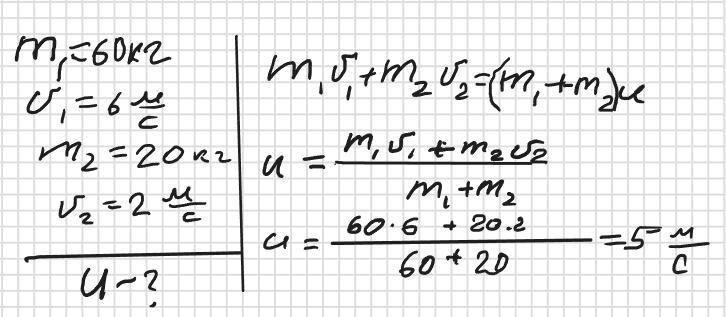 m₁=60кг
υ₁=6 м/с
m₂=20кг
υ₂=2 м/с
u-?
m₁υ₁+m₂υ₂=(m₁+m₂)u
u = (m₁υ₁+m₂υ₂)/(m₁+m₂)
u = (60·6 + 20·2)/(60+20) = 5 м/с